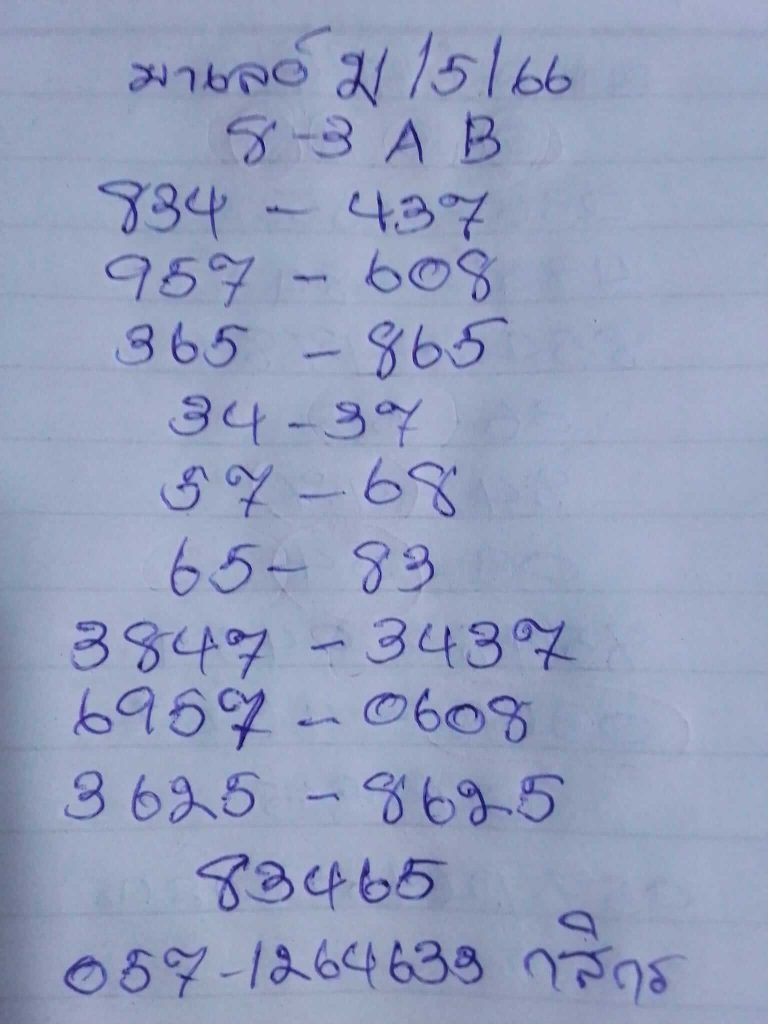 มาเลย์ /5/66
8-3 A B
834 - 437
957 - 608
365 - 865
34 - 37
57 - 68
65 - 83
3847 - 3437
6957 - 0608
3625 - 8625
83465
057-1264633 กสิกร